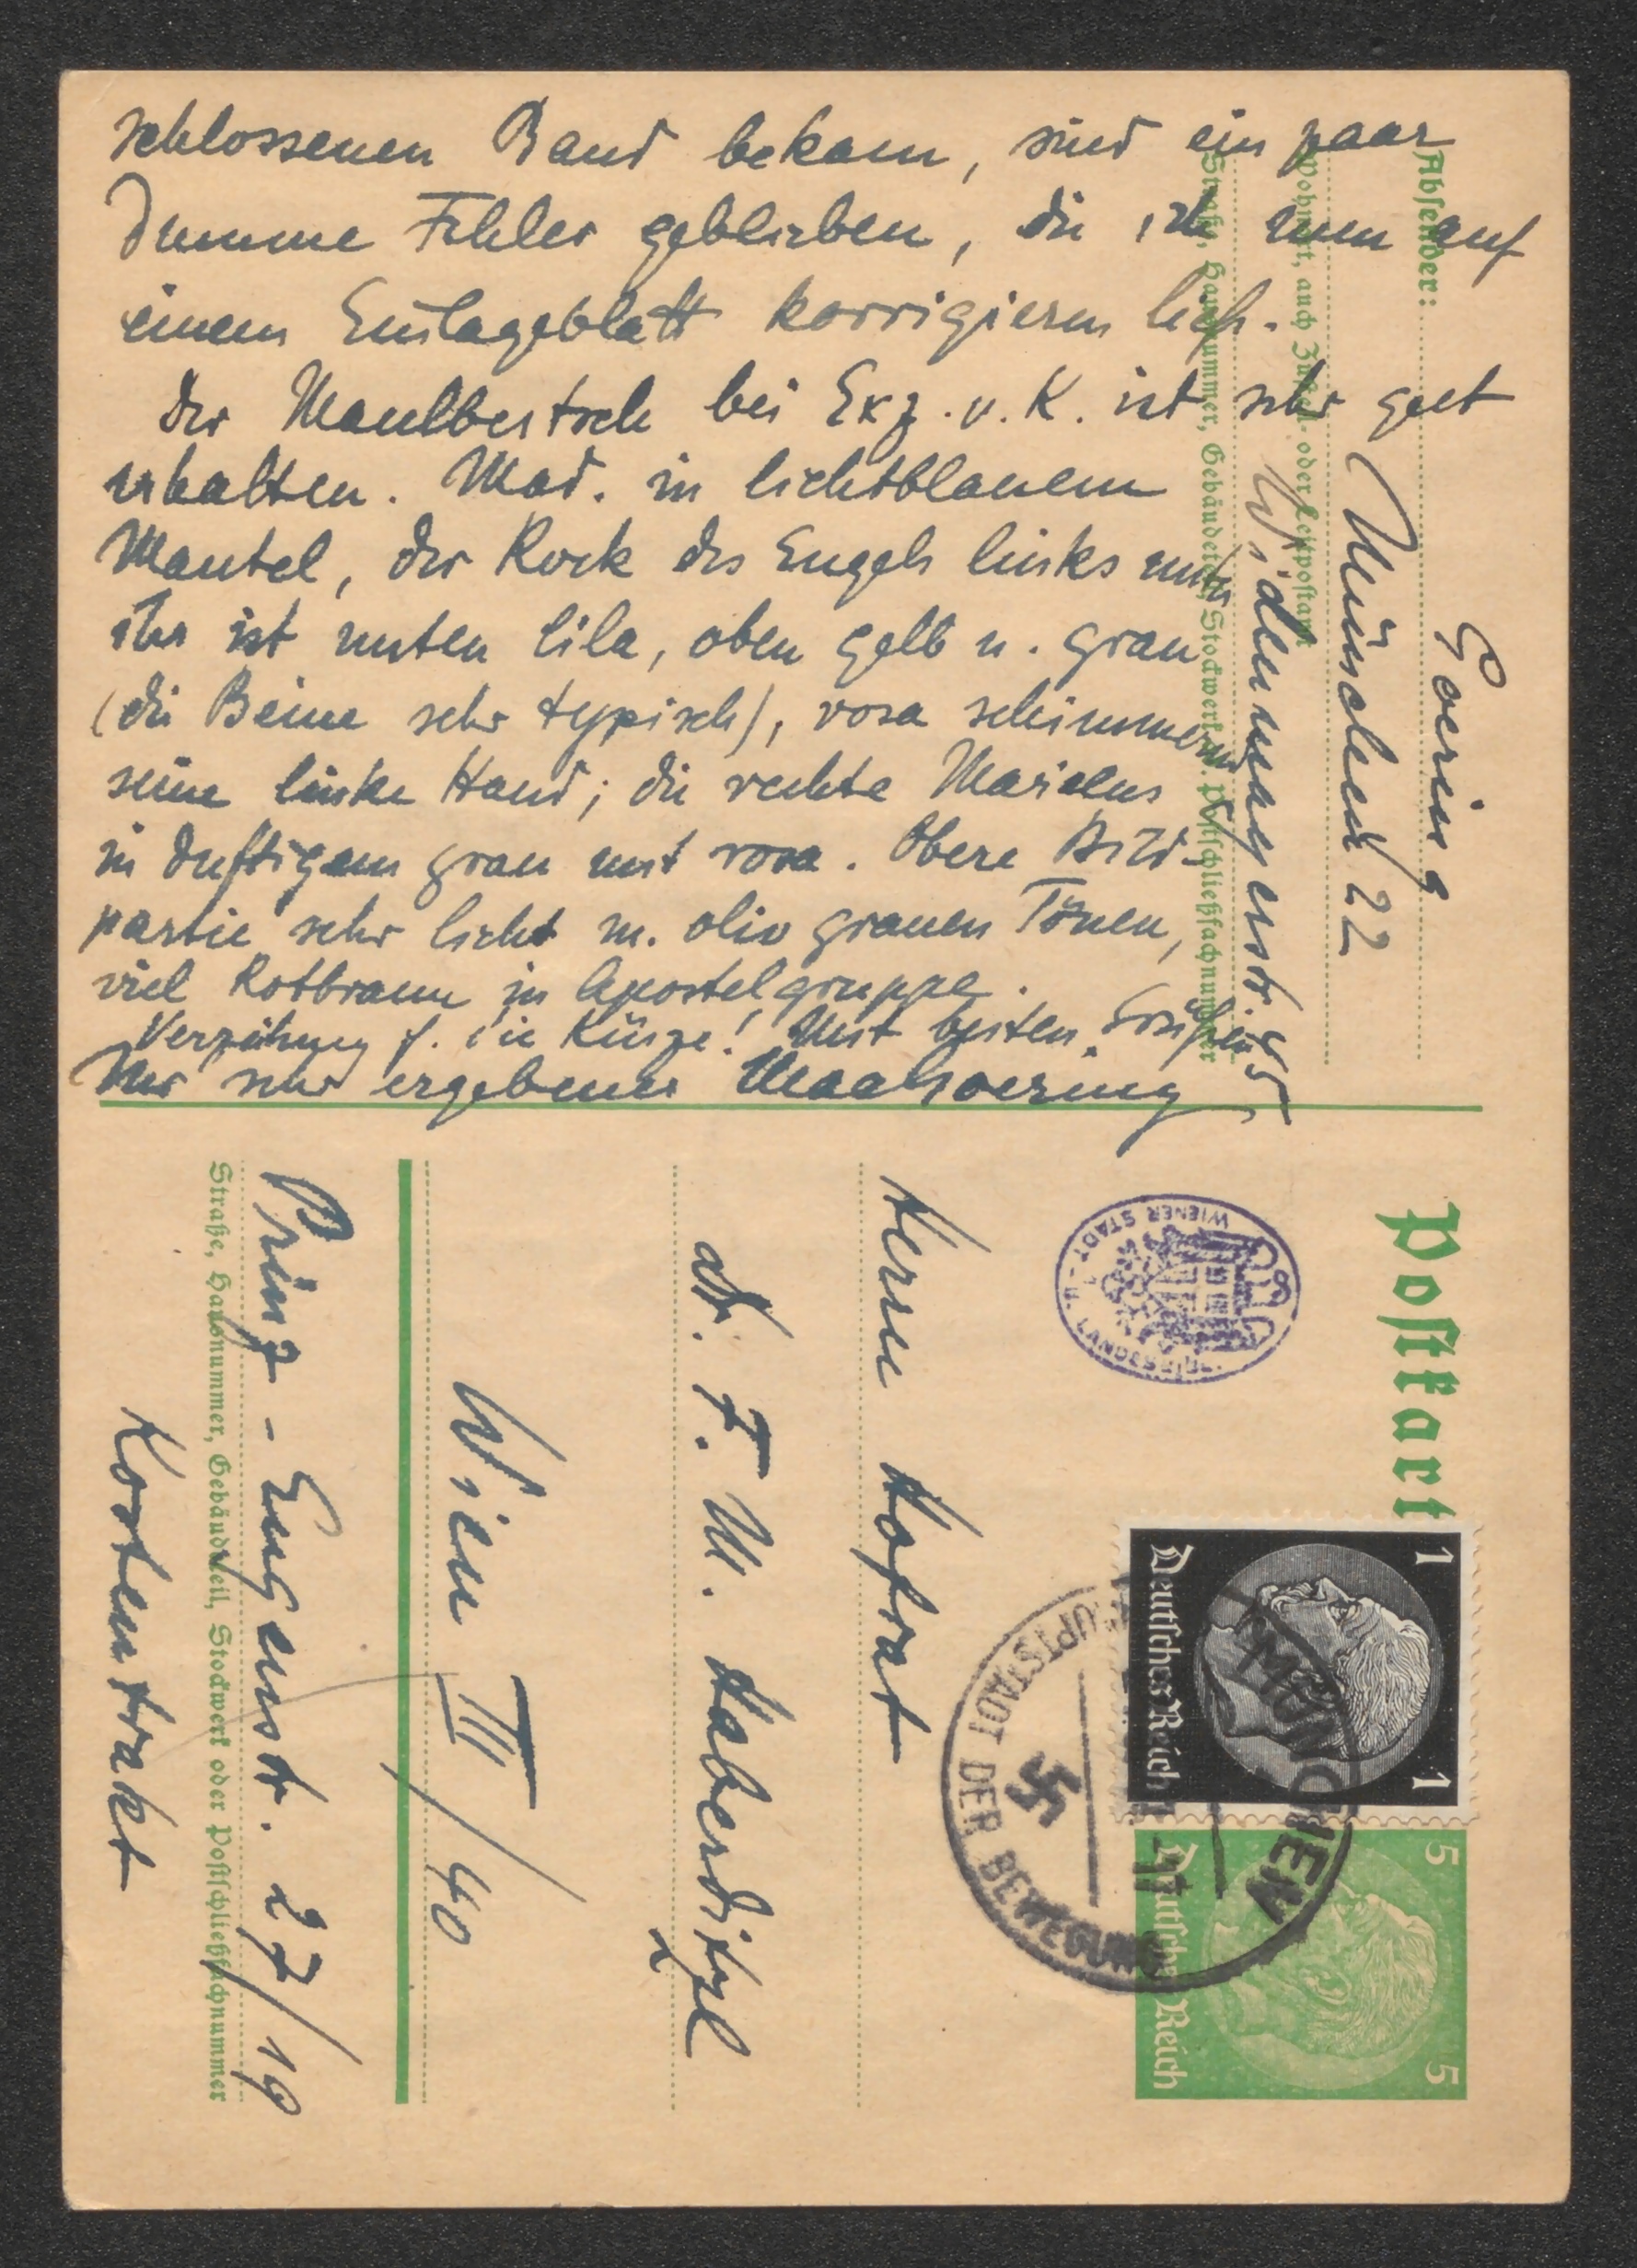 schlossenen Band bekam, sind ein paar
dumme Fehler geblieben, die ich nun auf
einem Einlageblatt korrigieren ließ.
Der Maulbertsch bei Exz. v. K. ist sehr gut
erhalten. Mad. in lichtblauem
Mantel, der Rock des Engels links unter
ihr ist unten lila, oben gelb u. grau
(die Beine sehr typisch), rosa schimmernd
seine linke Hand; die rechte Mariens
in duftigem grau mit rosa. Obere Bild-
partie sehr licht m. oliv grauen Tönen,
viel Rotbraun in Apostelgruppe.
Verzeihung f. die Kürze! Mit besten Grüßen
Ihr sehr ergebener
Absender:
Goering
München 22
Wohnort, auch Zustell- oder Leitpostamt
Widenmayerstr. 45
Straße, Hausnummer, Gebäudeteil, Stockwerk od. Postschließfachnummer
Postkarte
WIENER STADT- U.
1 1
Deutsches Reich
5 5
Deutsches Reich
MÜNCHEN
HAUPTSTADT DER BEWEGUNG
Herrn Hofrat
Dr. F. M. Haberditzl
Wien III/40
Prinz-Eugenstr. 27/19
Straße, Hausnummer, Gebäudeteil, Stockwerk oder Postschließfachnummer